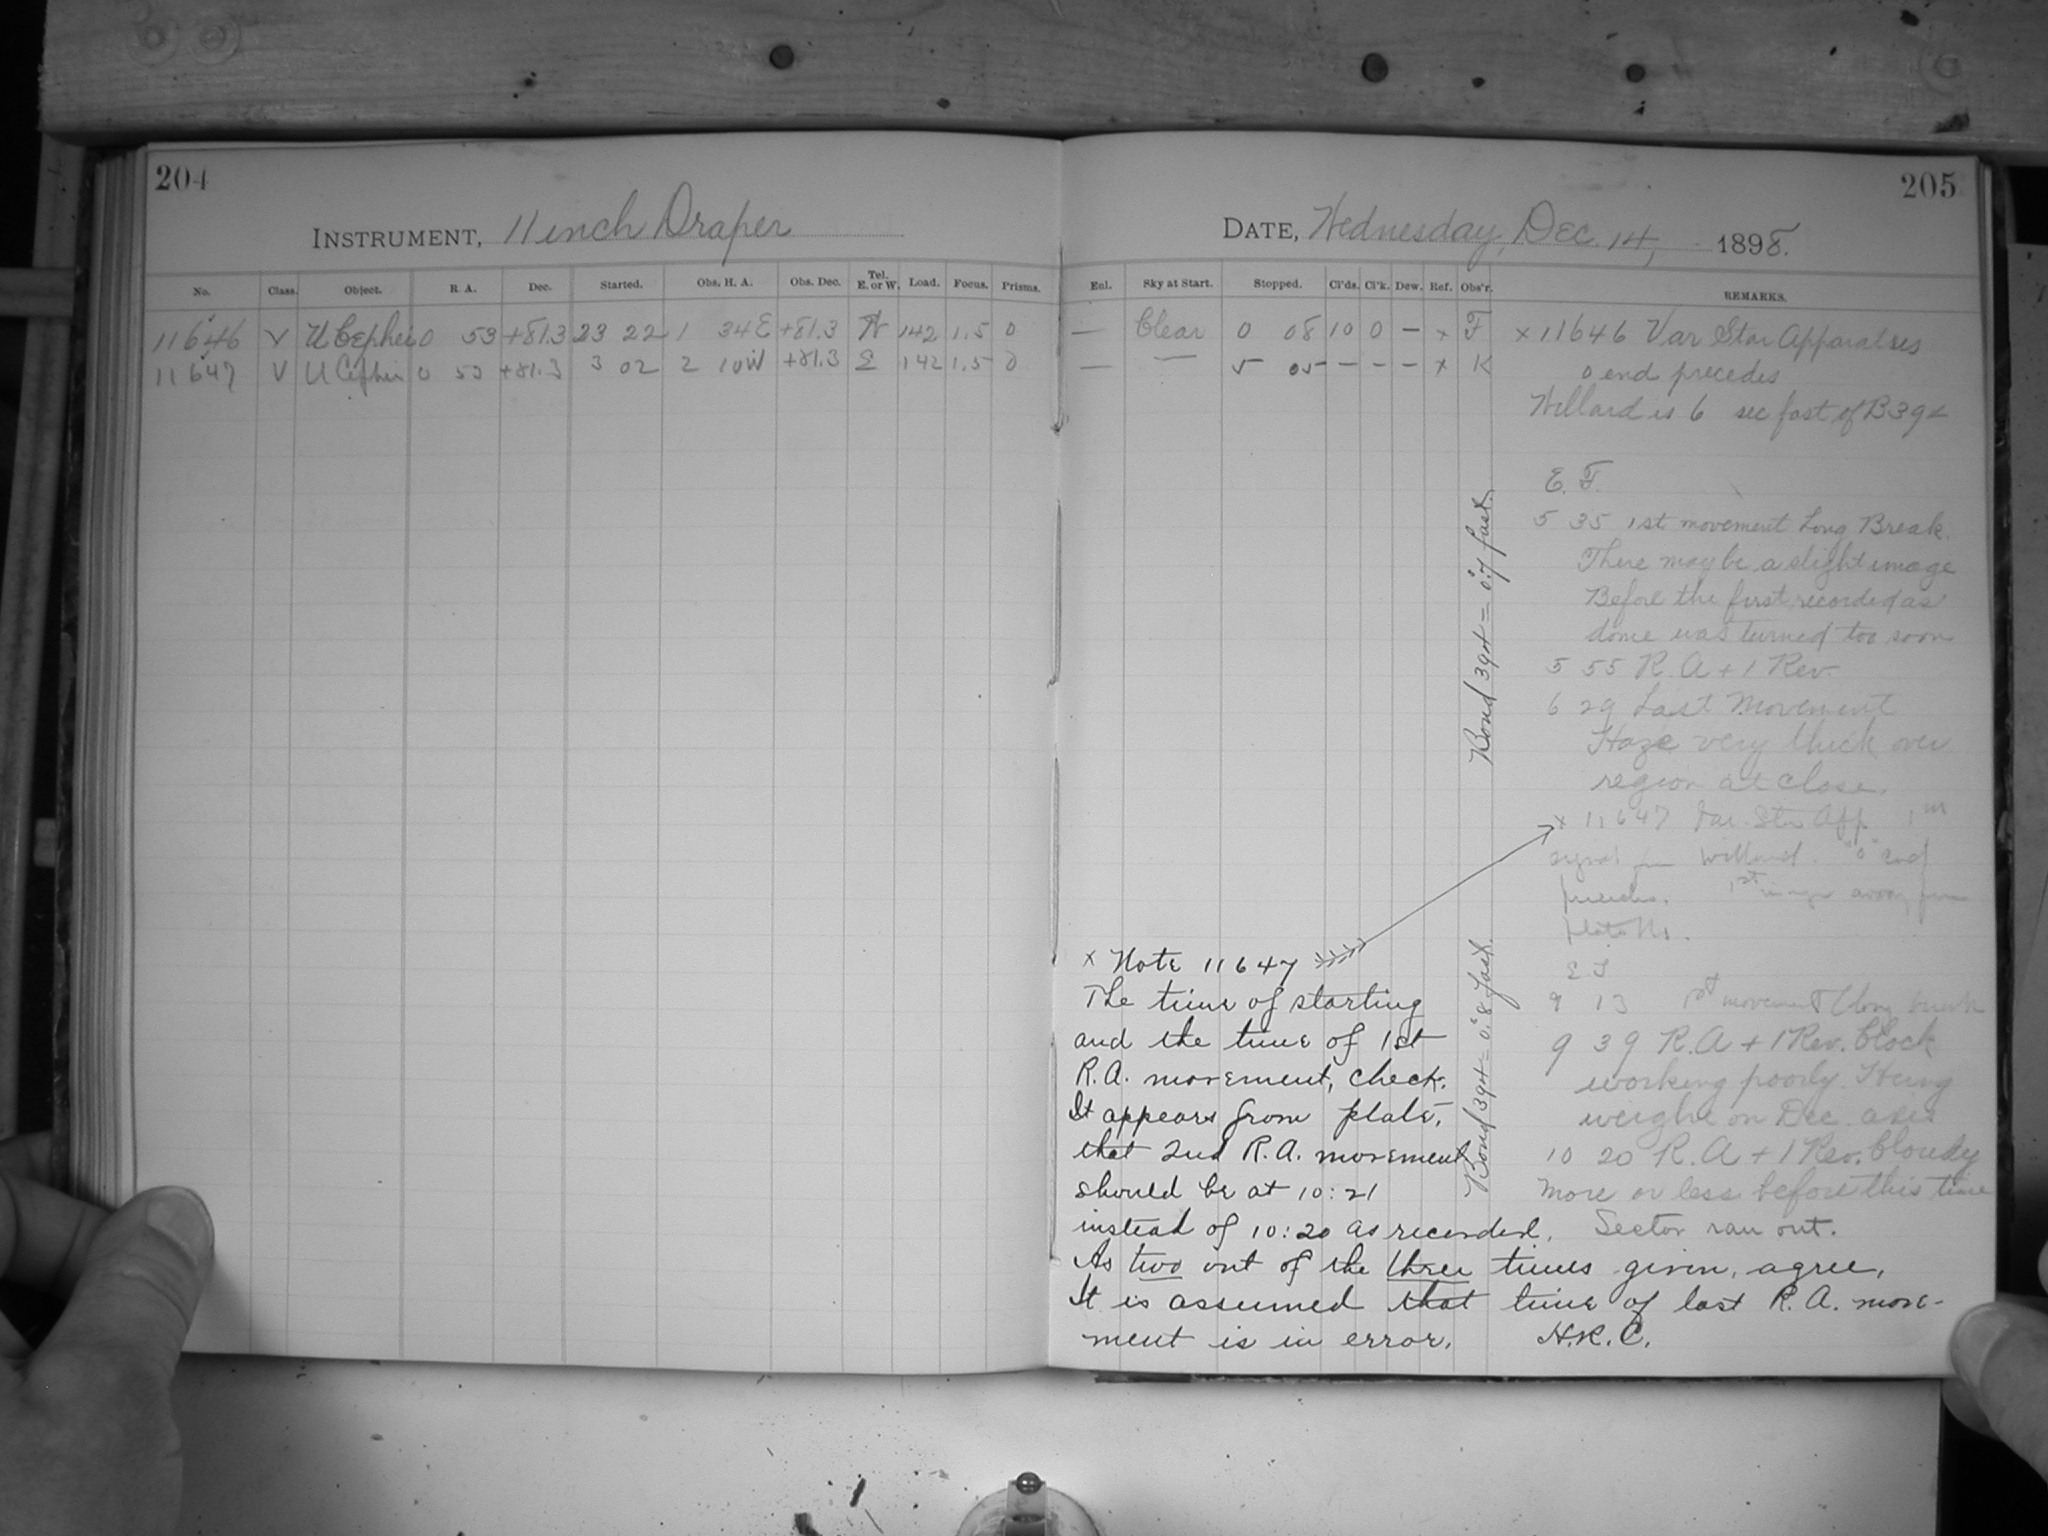 204
INSTRUMENT, 11 inch Draper
No. Class. Object. R. A. Dec. Started. Obs. H. A. Obs. Dec. Tel. E. or W. Load. Focus. Prisms.
11646 V U Cephei 0 53 +81.3 23 22 1 34 E +81.3 W 142 1.5 0
11647 V U Cephei 0 53 +81.3 3 02 2 10 W +81.3 E 142 1.5 0
205
DATE, Wednesday, Dec. 14, 1898.
Enl. Sky at Start. Stopped. Cl'ds. Cl'k. Dew. Ref. Obs'r. REMARKS.
— Clear 0 08 10 0 – x F
— — 5 05 – – – x K
x 11646 Var Star Apparatus
0 end precedes
Willard is 6 sec fast of B 394
E. F.
5 35 1st movement Long Break.
There may be a slight image
Before the first recorded as
dome was turned too soon
5 55 R. A + 1 Rev.
6 29 Last Movement
Haze very thick over
region at close.
x 11647 Var. Star App. 1m
signal from Willard. "0" end
precedes. 1st image away from
plate No.
9 13 1st movement Long break
9 39 R. A + 1 Rev. Clock
working poorly. Hung
weight on Dec. axis
10 20 R. A + 1 Rev. Cloudy
more or less before this time
Sector ran out.
Bond 394 = 0s.7 fast.
Bond 394 = 0s.8 fast.
x Note 11647
The time of starting
and the time of 1st
R. A. movement, check.
It appears from plate,
that 2nd R. A. movement
should be at 10:21
instead of 10:20 as recorded.
As two out of the three times given, agree,
It is assumed that time of last R. A. move-
ment is in error. H. R. C.